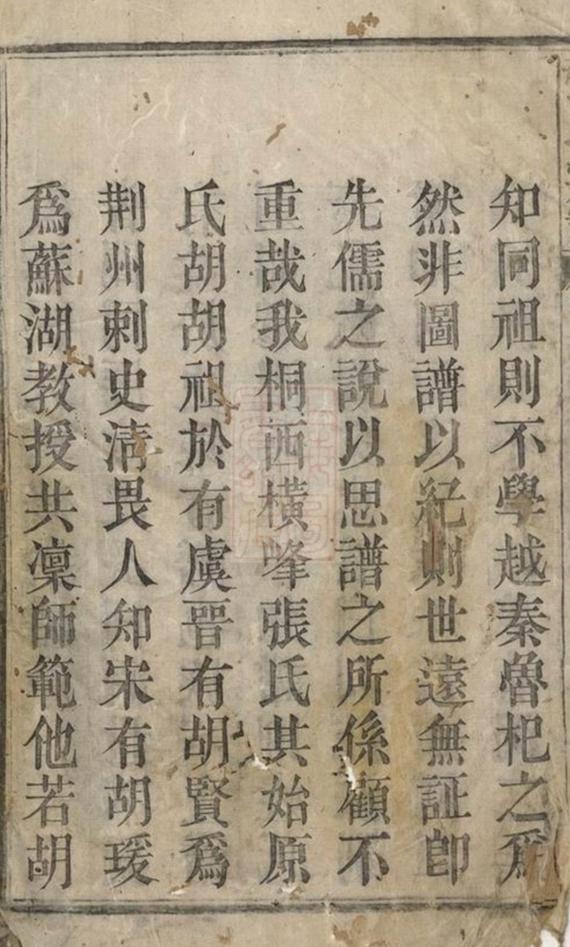 知同祖則不學越秦魯杞之爲
然非圖譜以紀則世遠無証卽
先儒之說以思譜之所係顧不
重哉我桐西橫峰張氏其始原
氏胡胡祖於有虞晉有胡賢爲
荆州刺史清畏人知宋有胡瑗
爲蘇湖教授共凜師範他若胡